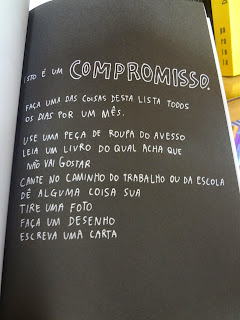 ISTO É UM COMPROMISSO.
FAÇA UMA DAS COISAS DESTA LISTA TODOS
OS DIAS POR UM MÊS.
USE UMA PEÇA DE ROUPA DO AVESSO
LEIA UM LIVRO DO QUAL ACHA QUE
NÃO VAI GOSTAR
CANTE NO CAMINHO DO TRABALHO OU DA ESCOLA
DÊ ALGUMA COISA SUA
TIRE UMA FOTO
FAÇA UM DESENHO
ESCREVA UMA CARTA